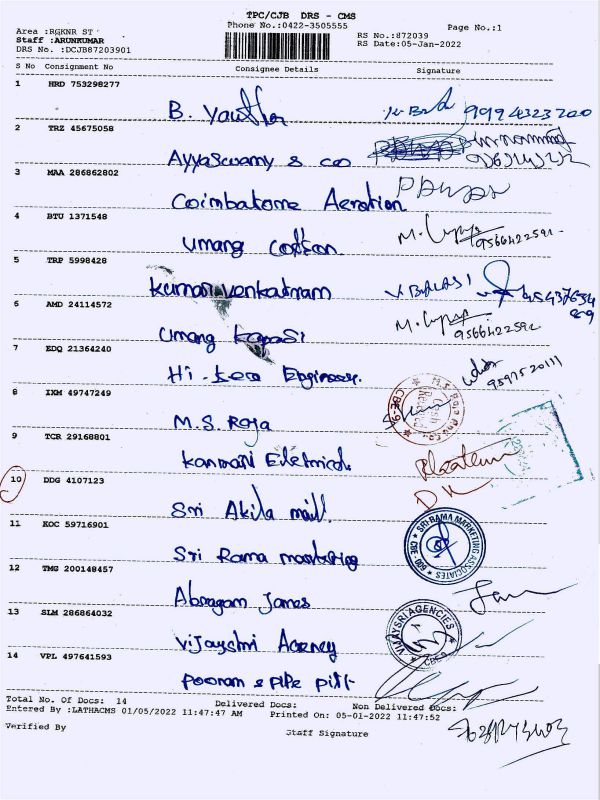 TPC/CJB DRS - CMS
Phone No.:0422-3505555
Page No.:1
Area :RGKNR ST
Staff :ARUNKUMAR
DRS No. :DCJB87203901
RS No.:872039
RS Date:05-Jan-2022
S No Consignment No Consignee Details Signature
1 HRD 753298277
B. 9994323200
2 TRZ 45675058
Ayyaswamy & co
3 MAA 286862802
Coimbatore Aeration
4 BTU 1371548
Umang cotton M. 9566422591
5 TRP 5998428
Kumar Venkatnam V. BALAJI
6 AMD 24114572
Umang Kapasi M. 9566422592
7 EDQ 21364240
Hi-tech Engineer.
8 IXM 49747249
M.S. Roja
9 TCR 29168801
Kanmani Eletrical
10 DDG 4107123
Sri Akila mill.
11 KOC 59716901
Sri Rama marketing SRI RAMA MARKETING ASSOCIATES
12 TMG 200148457
Abragam James
13 SLM 286864032
Vijayshri Agency VIJAYSRI AGENCIES
14 VPL 497641593
Poonam & Pipe Pitt
Total No. Of Docs: 14 Delivered Docs: Non Delivered Docs:
Entered By :LATHACMS 01/05/2022 11:47:47 AM Printed On: 05-01-2022 11:47:52
Verified By Staff Signature